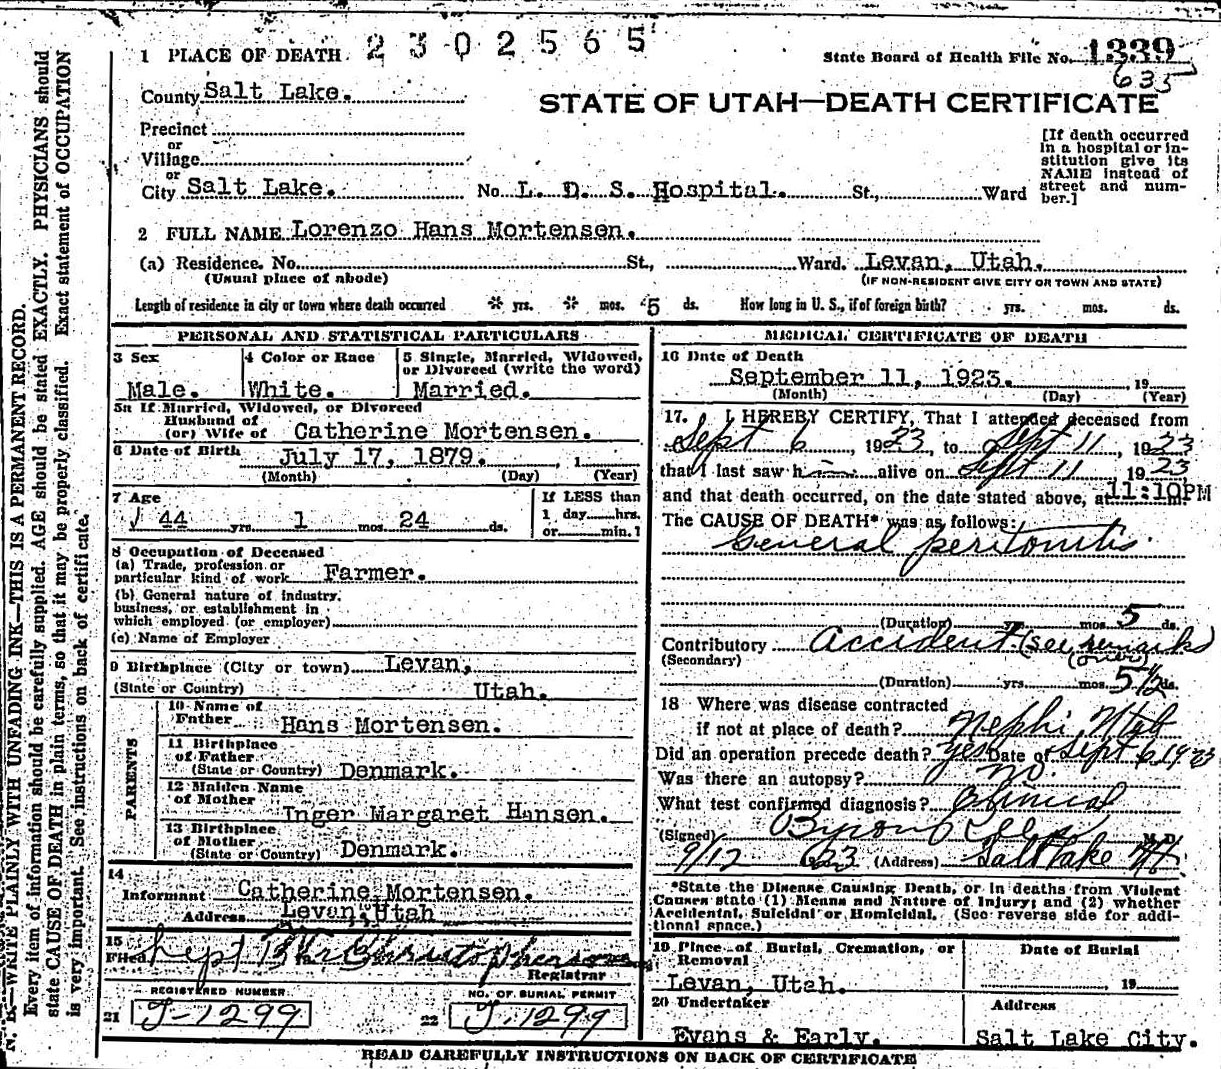 2302565
1 PLACE OF DEATH
State Board of Health File No. 1339
635
County Salt Lake.
STATE OF UTAH—DEATH CERTIFICATE
Precinct
or
Village
or
City Salt Lake. No. L. D. S. Hospital. St., Ward
[If death occurred
in a hospital or in-
stitution give its
NAME instead of
street and num-
ber.]
2 FULL NAME Lorenzo Hans Mortensen.
(a) Residence. No. St., Ward. Levan, Utah.
(Usual place of abode) (IF NON-RESIDENT GIVE CITY OR TOWN AND STATE)
Length of residence in city or town where death occurred * yrs. * mos. 5 ds. How long in U. S., if of foreign birth? yrs. mos. ds.
PERSONAL AND STATISTICAL PARTICULARS
3 Sex
Male.
4 Color or Race
White.
5 Single, Married, Widowed,
or Divorced (write the word)
Married.
5a If Married, Widowed, or Divorced
Husband of
(or) Wife of Catherine Mortensen.
6 Date of Birth July 17, 1879. , 1
(Month) (Day) (Year)
7 Age
44 yrs. 1 mos. 24 ds.
If LESS than
1 day hrs.
or min.
8 Occupation of Deceased
(a) Trade, profession or
particular kind of work Farmer.
(b) General nature of industry,
business, or establishment in
which employed (or employer)
(c) Name of Employer
9 Birthplace (City or town) Levan,
(State or Country) Utah.
PARENTS
10 Name of
Father Hans Mortensen.
11 Birthplace
of Father
(State or Country) Denmark.
12 Maiden Name
of Mother
Inger Margaret Hansen.
13 Birthplace
of Mother
(State or Country) Denmark.
14
Informant Catherine Mortensen.
Address Levan, Utah
15
Filed Sept Christopherson
Registrar
REGISTERED NUMBER
21 J-1299
NO. OF BURIAL PERMIT
22 J-1299
MEDICAL CERTIFICATE OF DEATH
16 Date of Death
September 11, 1923. , 19
(Month) (Day) (Year)
17. I HEREBY CERTIFY, That I attended deceased from
Sept 6, 1923, to Sept 11, 1923
that I last saw h alive on Sept 11 1923
and that death occurred, on the date stated above, at 11:10PM m.
The CAUSE OF DEATH* was as follows:
General peritonitis.
(Duration) yrs. mos. 5 ds.
Contributory Accident (see remarks
(Secondary) (over)
(Duration) yrs. mos. 5 1/2 ds.
18 Where was disease contracted
if not at place of death? Nephi, Utah
Did an operation precede death? yes Date of Sept 6 1923
Was there an autopsy? no.
What test confirmed diagnosis? Clinical
(Signed) Byron M.D.
9/12 23 (Address) Salt Lake
*State the Disease Causing Death, or in deaths from Violent
Causes state (1) Means and Nature of Injury; and (2) whether
Accidental, Suicidal or Homicidal. (See reverse side for addi-
tional space.)
19 Place of Burial, Cremation, or
Removal
Levan, Utah.
Date of Burial
, 19
20 Undertaker
Evans & Early.
Address
Salt Lake City.
READ CAREFULLY INSTRUCTIONS ON BACK OF CERTIFICATE
N. B.—WRITE PLAINLY WITH UNFADING INK—THIS IS A PERMANENT RECORD.
Every item of information should be carefully supplied. AGE should be stated EXACTLY. PHYSICIANS should
state CAUSE OF DEATH in plain terms, so that it may be properly classified. Exact statement of OCCUPATION
is very important. See instructions on back of certificate.